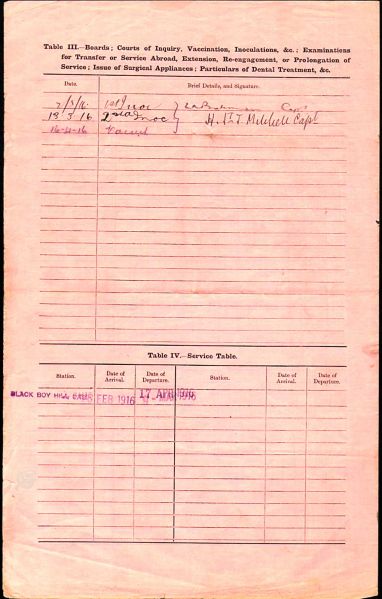 Table III.—Boards; Courts of Inquiry, Vaccination, Inoculations, &c.; Examinations
for Transfer or Service Abroad, Extension, Re-engagement, or Prolongation
of Service; Issue of Surgical Appliances; Particulars of Dental Treatment, &c.
Date. Brief Details, and Signature.
7/3/16 1st Inoc Capt
18 3 16 2nd Inoc H. Mitchell Capt
16-4-16
Table IV.—Service Table.
Station. Date of Arrival. Date of Departure. Station. Date of Arrival. Date of Departure.
BLACK BOY HILL FEB 1916 17 APR 1916